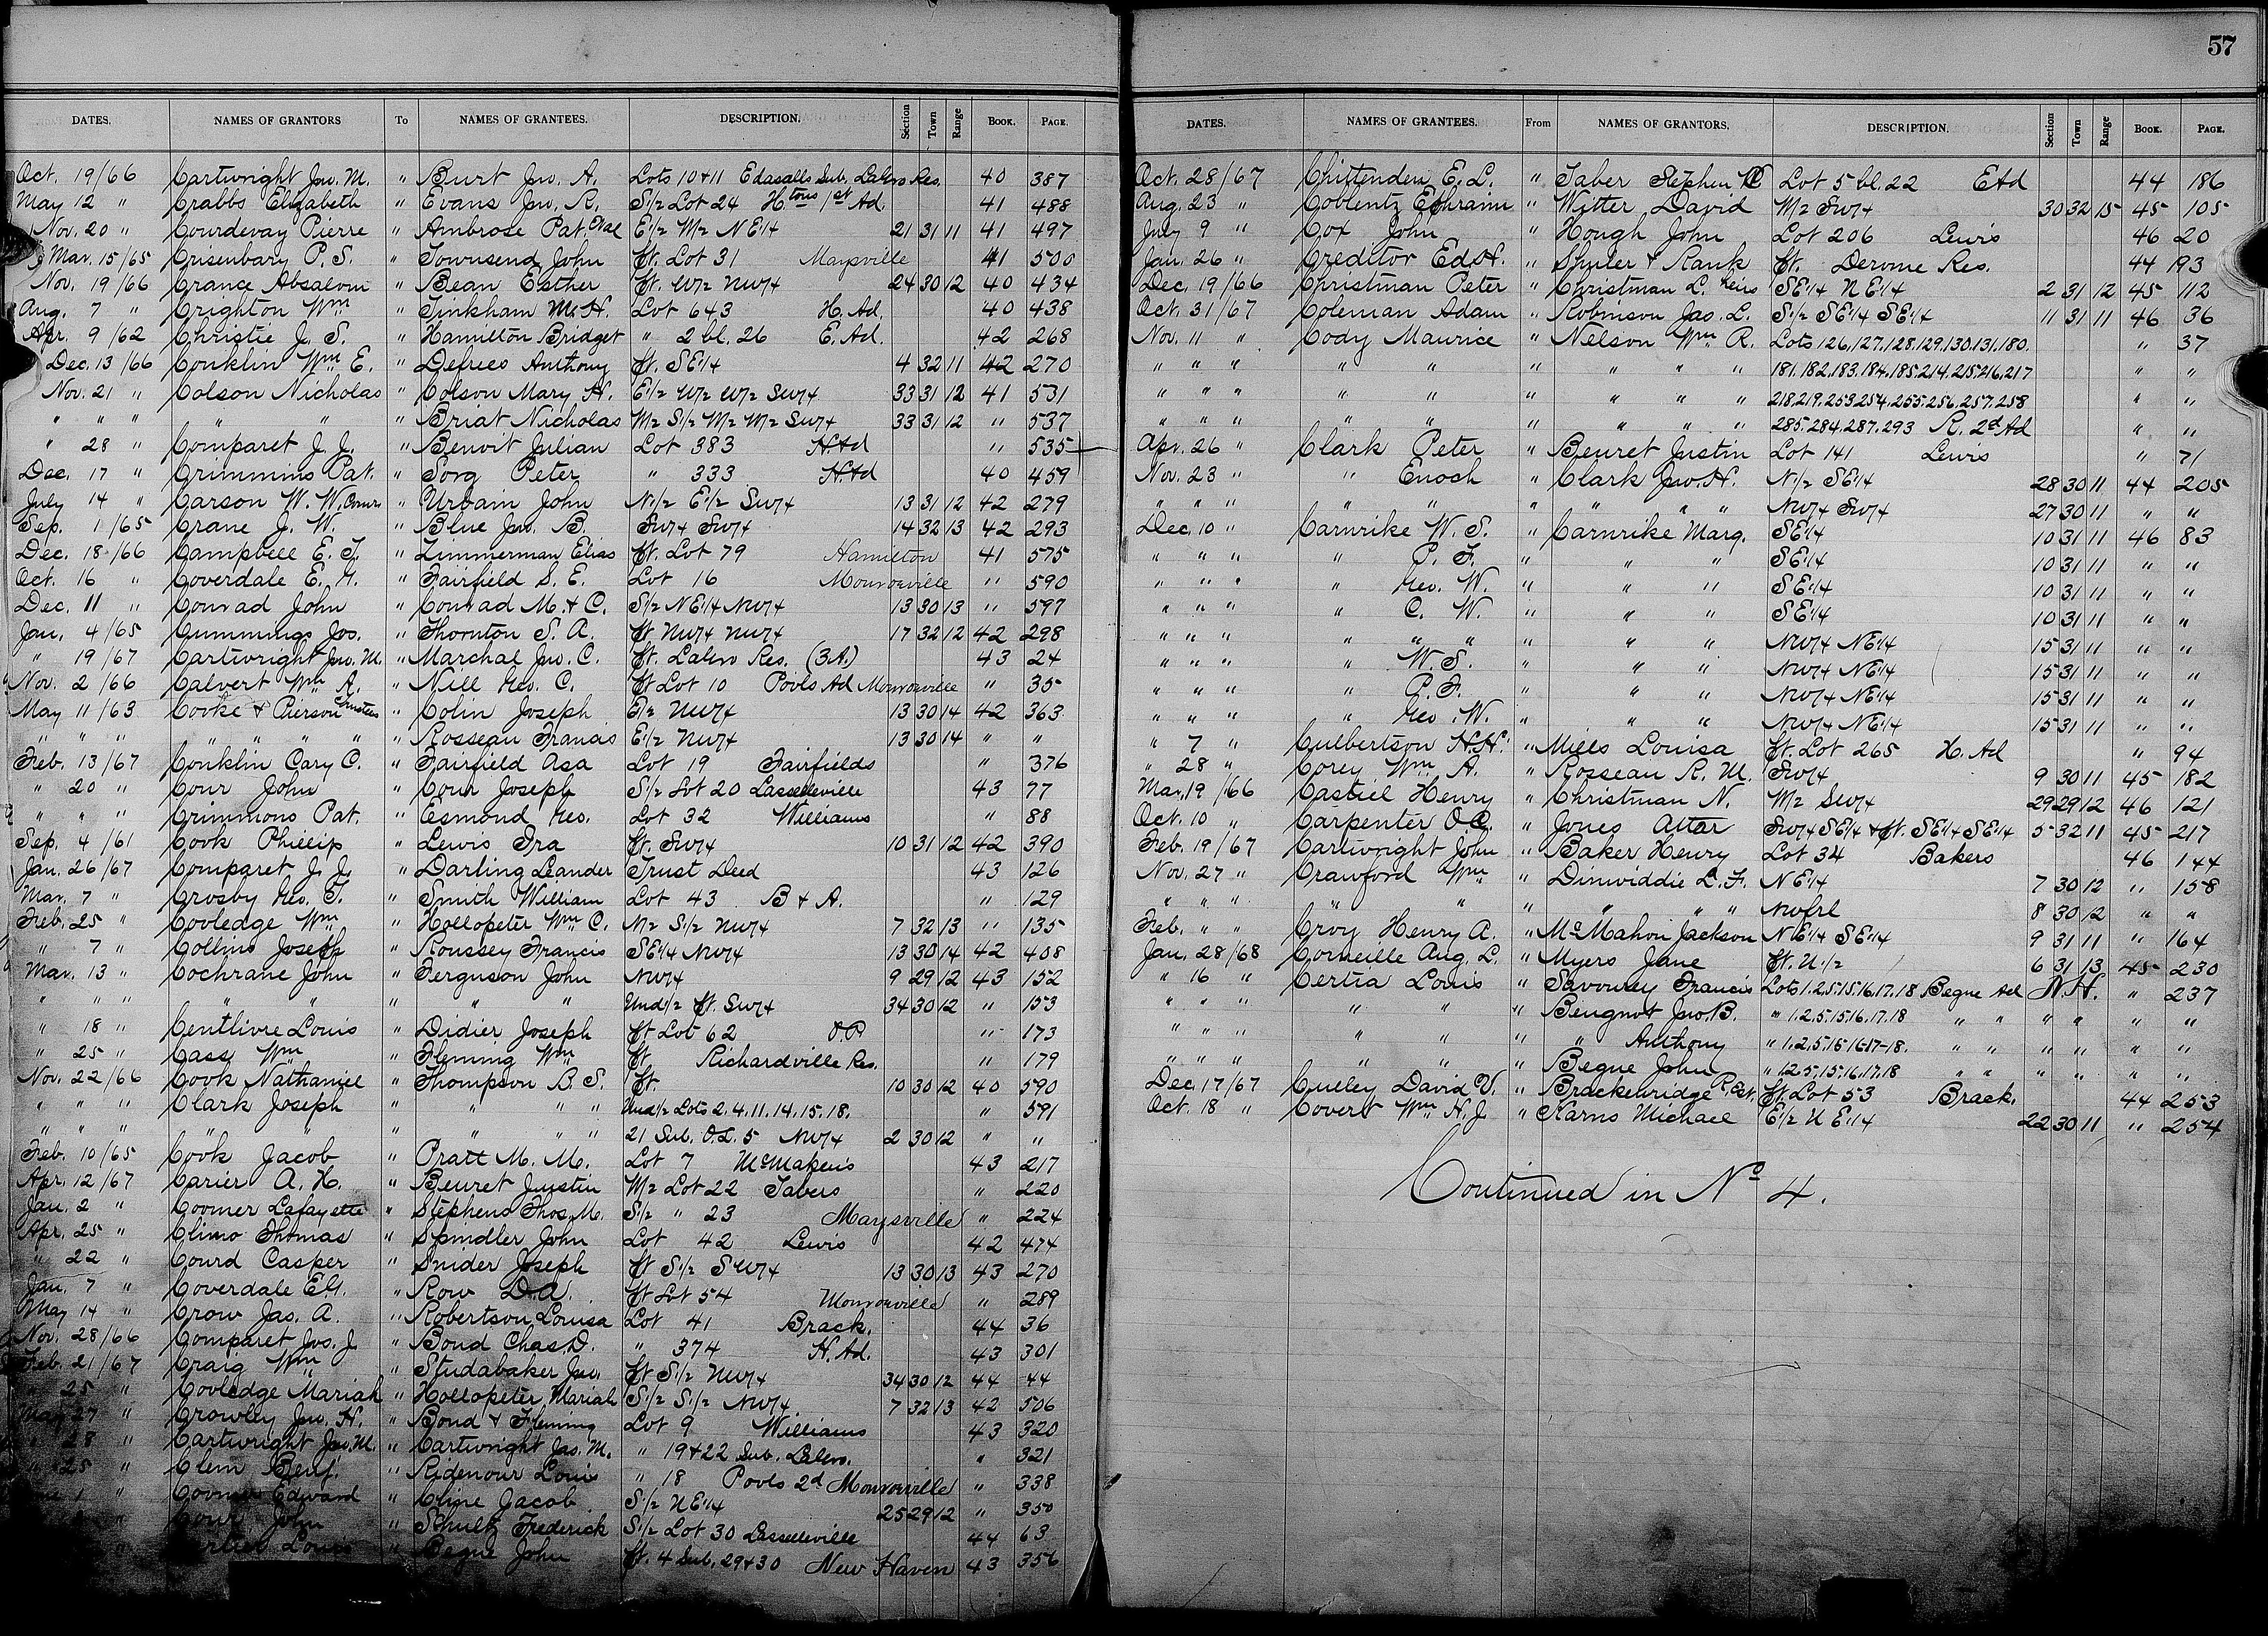 57
DATES. NAMES OF GRANTORS To NAMES OF GRANTEES. DESCRIPTION. Section Town Range BOOK. PAGE.
Oct. 19/66 Cartwright Jno. M. " Burt Jno. A. Lots 10+11 Edasalls Sub. Lalero Res. 40 387
May 12 " Crabbs Elizabeth " Evans Jno. R. S1/2 Lot 24 H.tons 1st Ad. 41 488
Nov. 20 " Courdevay Pierre " Ambrose Pat. Etal E1/2 W1/2 NE1/4 21 31 11 41 497
Mar. 15/65 Crisenbary P. S. " Townsend John Pt. Lot 31 Maysville 41 500
Nov. 19/66 Crance Absalom " Bean Esther Pt. W1/2 NW1/4 24 30 12 40 434
Aug. 7 " Crighton Wm " Tinkham M. H. Lot 643 H. Ad. 40 438
Apr. 9/62 Christie J. S. " Hamilton Bridget " 2 bl. 26 E. Ad. 42 268
Dec. 13/66 Conklin Wm E. " Defrees Anthony Pt. SE1/4 4 32 11 42 270
Nov. 21 " Colson Nicholas " Colson Mary H. E1/2 W1/2 W1/2 SW1/4 33 31 12 41 531
" " " " " " Briat Nicholas W1/2 S1/2 W1/2 W1/2 SW1/4 33 31 12 " 537
" 28 " Comparet J. J. " Benoit Julian Lot 383 H. Ad " 535
Dec. 17 " Crimmins Pat. " Sorg Peter " 333 H. Ad 40 459
July 14 " Carson W. W. Comr " Urbain John N1/2 E1/2 SW1/4 13 31 12 42 279
Sep. 1/65 Crane J. W. " Blue Jno. B. SW1/4 SW1/4 14 32 13 42 293
Dec. 18/66 Campbell E. T. " Zimmerman Elias Pt. Lot 79 Hamilton 41 575
Oct. 16 " Coverdale E. G. " Fairfield S. E. Lot 16 Monroeville " 590
Dec. 11 " Conrad John " Conrad M. & C. S1/2 NE1/4 NW1/4 13 30 13 " 597
Jan. 4/65 Cummings Jos. " Thornton S. A. Pt NW1/4 NW1/4 17 32 12 42 298
" 19/67 Cartwright Jno. M. " Marchal Jno. C. Pt. Lalero Res. (3A.) 43 24
Nov. 2/66 Calvert Wm A. " Nill Geo. C. Pt Lot 10 Pools Ad Monroeville " 35
May 11/63 Cooke & Pierson Trustees " Colin Joseph E1/2 NW1/4 13 30 14 42 363
" " " " " " " " Rosseau Francis E1/2 NW1/4 13 30 14 " "
Feb. 13/67 Conklin Cary C. " Fairfield Asa Lot 19 Fairfields " 376
" 20 " Cour John " Cour Joseph S1/2 Lot 20 Lasselleville 43 77
" " " Crimmons Pat. " Esmond Geo. Lot 32 Williams " 88
Sep. 4/61 Cook Phillip " Lewis Ira Pt. SW1/4 10 31 12 42 390
Jan. 26/67 Comparet J. J. " Darling Leander Trust Deed 43 126
Mar. 7 " Crosby Geo. T. " Smith William Lot 43 B & A. " 129
Feb. 25 " Cooledge Wm " Hollopeter Wm C. N1/2 S1/2 NW1/4 7 32 13 " 135
" 7 " Collins Joseph " Roussey Francis SE1/4 NW1/4 13 30 14 42 408
Mar. 13 " Cochrane John " Ferguson John NW1/4 9 29 12 43 152
" " " " " " " " Und1/2 Pt. SW1/4 34 30 12 " 153
" 18 " Centlivre Louis " Didier Joseph Pt Lot 62 O.P. " 173
" 25 " Cass Wm " Fleming Wm Pt. Richardville Res. " 179
Nov. 22/66 Cook Nathaniel " Thompson B. S. Pt. 10 30 12 40 590
" " " Clark Joseph " " " " Und1/2 Lots 2.4.11.14.15.18. " 591
" " " " " " " " " 21 Sub. O.L. 5 NW1/4 2 30 12 " "
Feb. 10/65 Cook Jacob " Pratt M. M. Lot 7 McMakens 43 217
Apr. 12/67 Carier A. H. " Beuret Justin W1/2 Lot 22 Tabers " 220
Jan. 2 " Coomer Lafayette " Stephens Thos. M. S1/2 " 23 Maysville " 224
Apr. 25 " Climo Thomas " Spindler John Lot 42 Lewis 42 474
" 22 " Courd Casper " Snider Joseph Pt S1/2 SW1/4 13 30 13 43 270
Jan. 7 " Coverdale E.G. " Row D.A. Pt Lot 54 Monroeville " 289
May 14 " Crow Jas. A. " Robertson Louisa Lot 41 Brack. 44 36
Nov. 28/66 Comparet Jos. J. " Bond Chas. D. " 374 H. Ad. 43 301
Feb. 21/67 Craig Wm " Studabaker Jno. Pt S1/2 NW1/4 34 30 12 44 44
" 25 " Cooledge Mariah " Hollopeter Mariah S1/2 S1/2 NW1/4 7 32 13 42 506
May 27 " Crowley Jno. H. " Bond & Fleming Lot 9 Williams 43 320
" 28 " Cartwright Jno. M. " Cartwright Jas. M. " 19+22 Sub. Lalero. " 321
" 25 " Clem Benj. " Ridenour Louis " 18 Pools 2d Monroeville " 338
1 " Coomer Edward " Cline Jacob S1/2 NE1/4 25 29 12 " 350
" Cour John " Schultz Frederick S1/2 Lot 30 Lasselleville 44 63
Louis " Begue John Pt. 4 Sub. 29+30 New Haven 43 356
DATES. NAMES OF GRANTEES. From NAMES OF GRANTORS. DESCRIPTION. Section Town Range BOOK. PAGE.
Oct. 28/67 Chittenden E. L. " Taber Stephen C Lot 5 bl. 22 E Ad 44 186
Aug. 23 " Coblentz Ephraim " Witter David W1/2 SW1/4 30 32 15 45 105
July 9 " Cox John " Hough John Lot 206 Lewis 46 20
Jan. 26 " Creditor Ed. H. " Shuler & Rank Pt. Derome Res. 44 193
Dec. 19/66 Christman Peter " Christman L. heirs SE1/4 NE1/4 2 31 12 45 112
Oct. 31/67 Coleman Adam " Robinson Jas. L. S1/2 SE1/4 SE1/4 11 31 11 46 36
Nov. 11 " Cody Maurice " Nelson Wm R. Lots 126,127.128.129.130.131.180. " 37
" " " " " " " " " 181.182.183.184.185.214.215.216.217 " "
" " " " " " " " " 218.219.253.254.255.256.257.258 " "
" " " " " " " " " 285.284.287.293 R. 2d Ad " "
Apr. 26 " Clark Peter " Beuret Justin Lot 141 Lewis " 71
Nov. 23 " " Enoch " Clark Jno. H. N1/2 SE1/4 28 30 11 44 205
" " " " " " " " " NW1/4 SW1/4 27 30 11 " "
Dec. 10 " Carnrike W. S. " Carnrike Marg. SE1/4 10 31 11 46 83
" " " " P. F. " " " SE1/4 10 31 11 " "
" " " " Geo. W. " " " SE1/4 10 31 11 " "
" " " " C. W. " " " SE1/4 10 31 11 " "
" " " " " " " " " NW1/4 NE1/4 15 31 11 " "
" " " " W. S. " " " NW1/4 NE1/4 15 31 11 " "
" " " " P. F. " " " NW1/4 NE1/4 15 31 11 " "
" " " " Geo. W. " " " NW1/4 NE1/4 15 31 11 " "
" 7 " Culbertson H.H. " Mills Louisa Pt. Lot 265 H. Ad " 94
" 28 " Corey Wm A. " Rosseau R. M. SW1/4 9 30 11 45 182
Mar. 19/66 Casteel Henry " Christman N. W1/2 SW1/4 29 29 12 46 121
Oct. 10 " Carpenter O.C. " Jones Attar SW1/4 SE1/4 & Pt. SE1/4 SE1/4 5 32 11 45 217
Feb. 19/67 Cartwright John " Baker Henry Lot 34 Bakers 46 144
Nov. 27 " Crawford Wm " Dinwiddie L. F. NE1/4 7 30 12 " 158
" " " " " " " " " NW frl 8 30 12 " "
Feb. " " Croy Henry A. " McMahon Jackson NE1/4 SE1/4 9 31 11 " 164
Jan. 28/68 Corneille Aug. L. " Myers Jane Pt. N1/2 6 31 13 45 230
" 16 " Certia Louis " Savouley Francis Lots 1.2.5.15.16.17.18 Begue Ad N.H. " 237
" " " " " " Beugnot Jno. B. " 1.2.5.15.16.17.18 " " " " " "
" " " " " " " Anthony " 1.2.5.15-16-17-18. " " " " " "
" " " " " " Begue John " 1.2.5.15.16.17.18 " " " " " "
Dec. 17/67 Culley David V. " Brackenridge R. Est. Pt. Lot 53 Brack. 44 253
Oct. 18 " Covert Wm H. J. " Karns Michael E1/2 NE1/4 22 30 11 " 254
Continued in No 4.